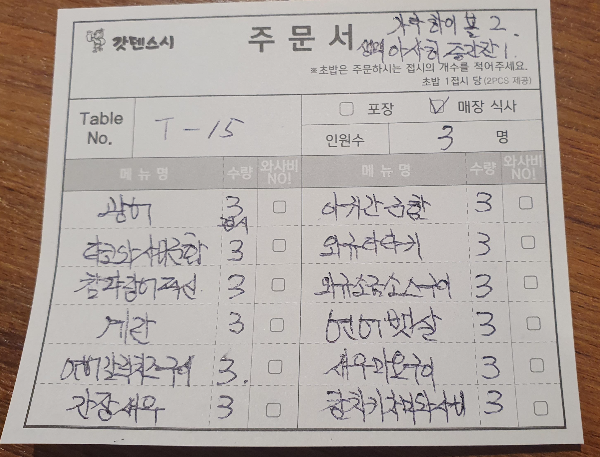 갓덴스시 주문서 가쿠하이볼 2.
생맥 아사히 중간잔 1.
※초밥은 주문하시는 접시의 개수를 적어주세요.
초밥 1접시 당 (2PCS 제공)
Table No. T-15 포장 매장 식사
인원수 3 명
메뉴명 수량 와사비 NO! 메뉴명 수량 와사비 NO!
광어 3접시 3
타코와사비군함 3 와규타다끼 3
참치 3 와규소금소스구이 3
계란 3 연어뱃살 3
연어갈릭치즈구이 3. 새우마요구이 3
간장새우 3 3